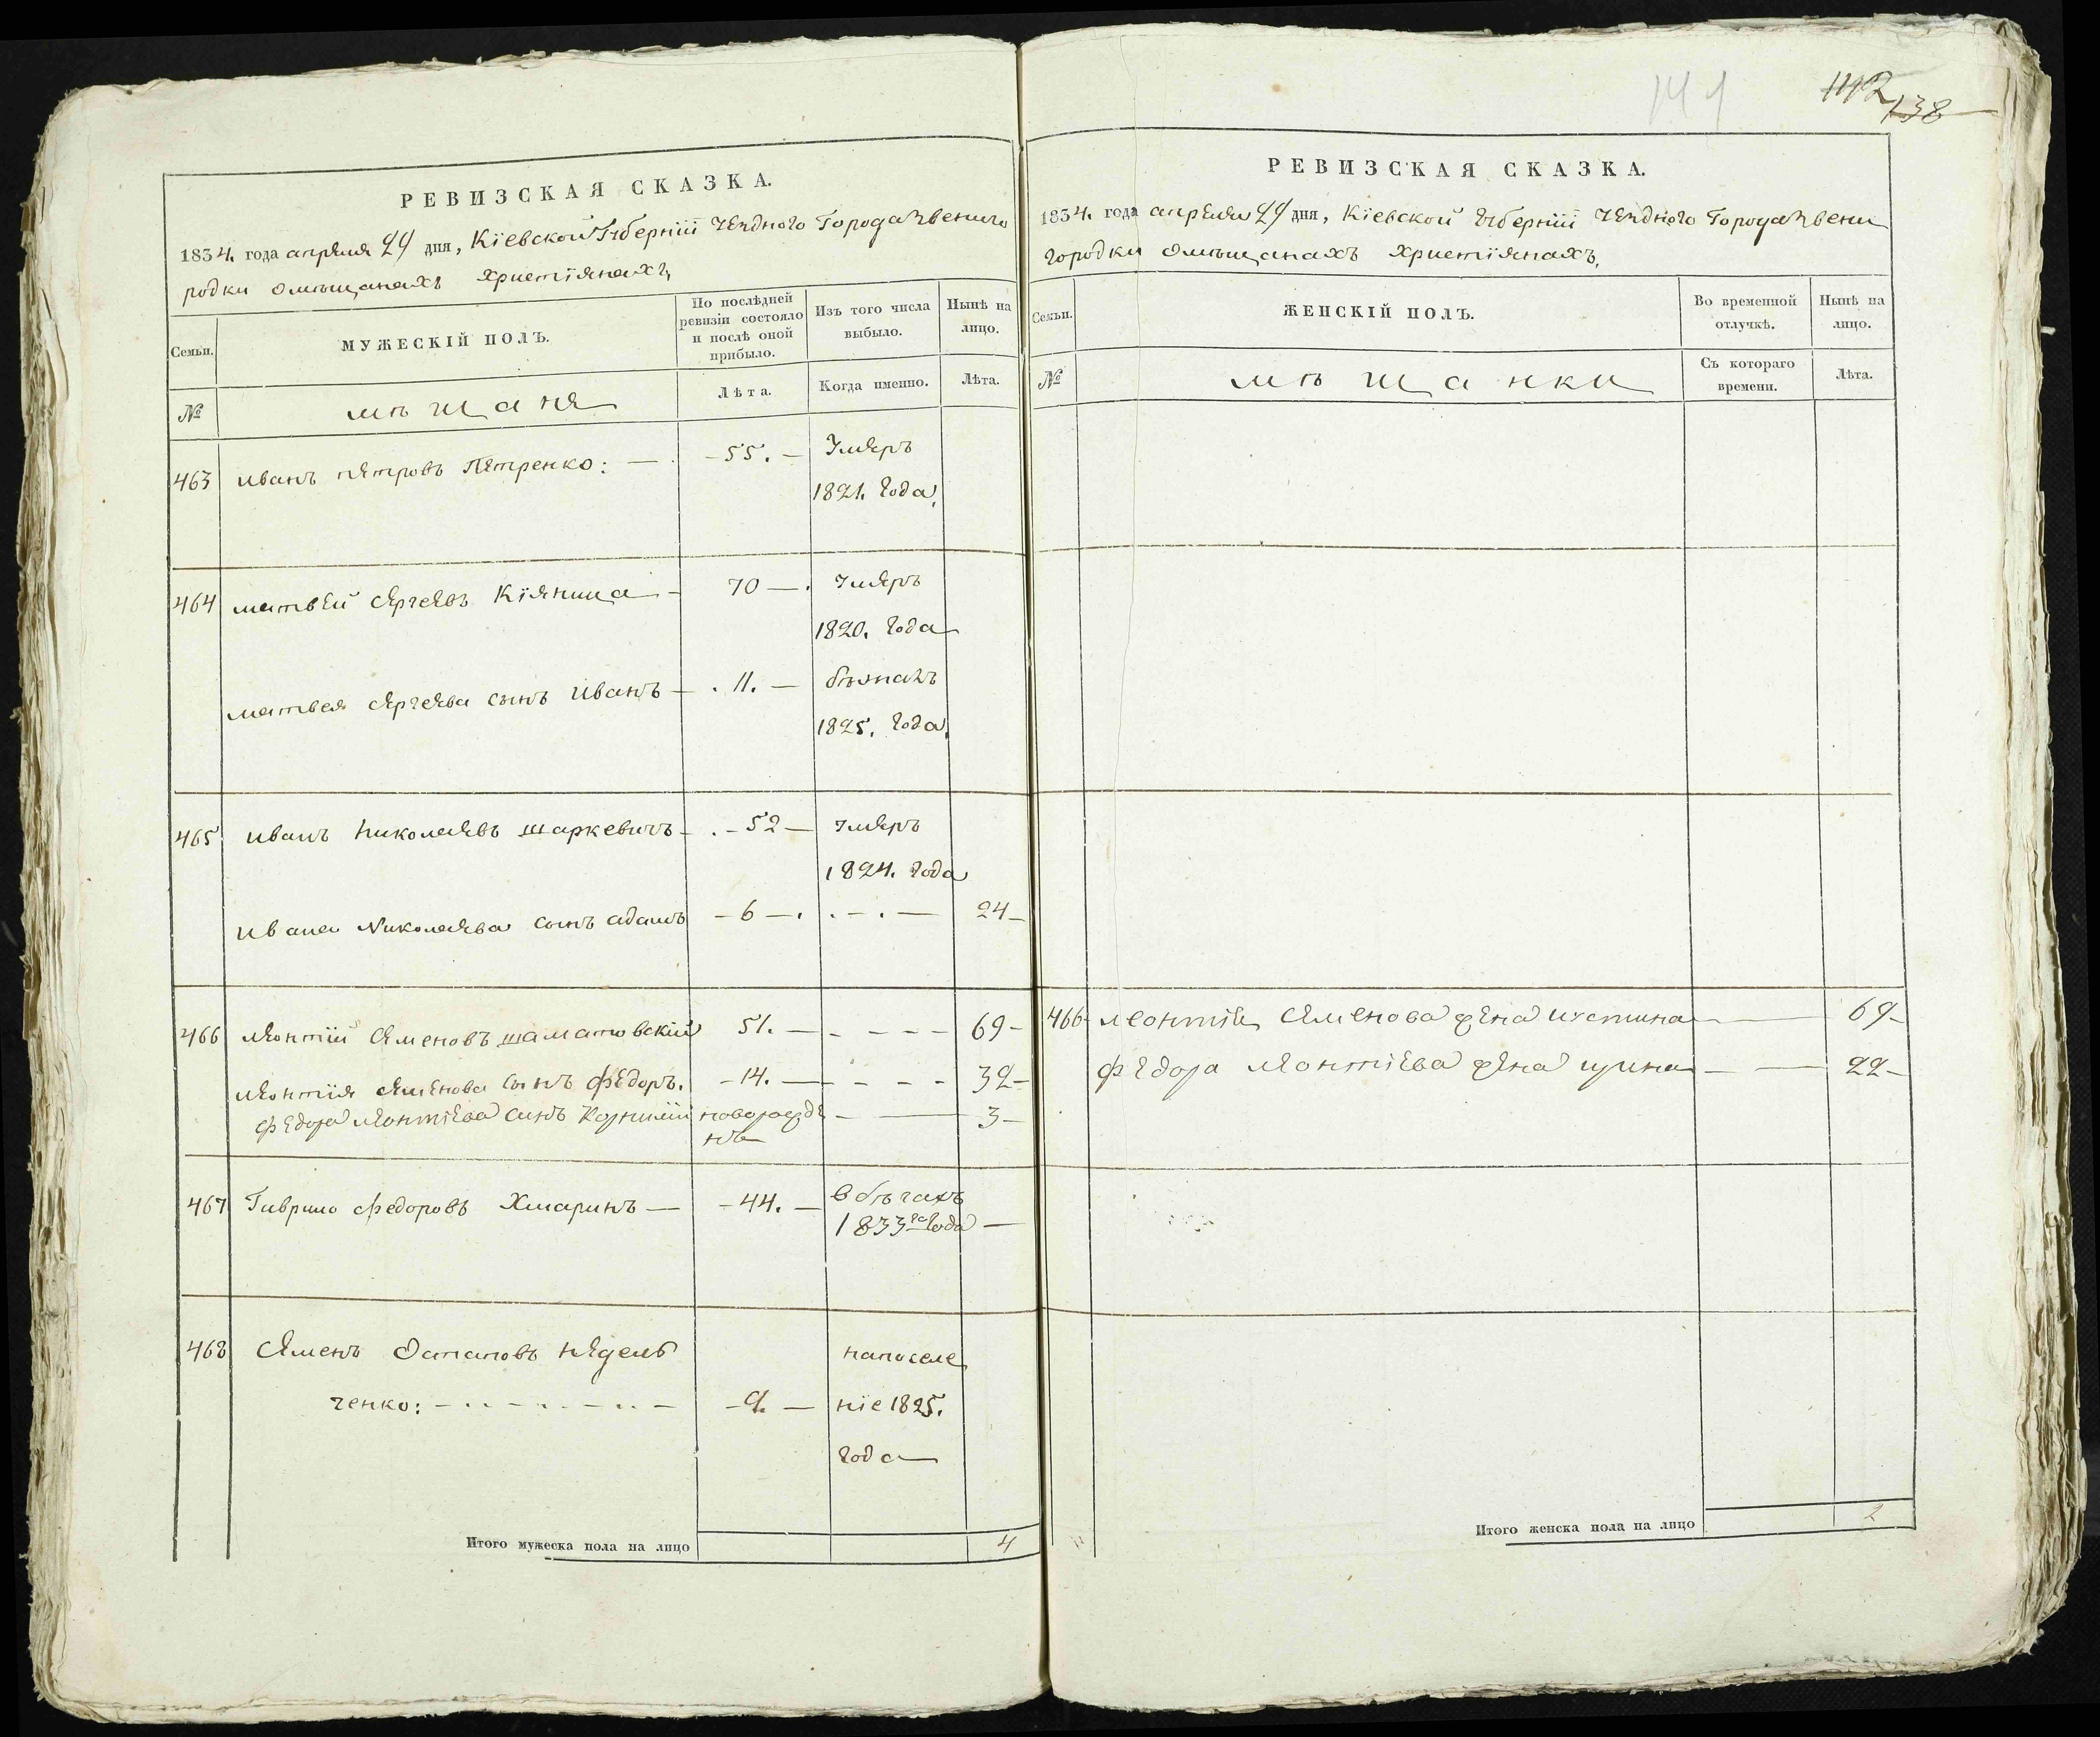 РЕВИЗСКАЯ СКАЗКА.
1834. года апреля 29 дня, Кіевской Губерніи уездного Города Звениго
родки омѣщанахъ христіянахъ,
Семьи.
МУЖЕСКІЙ ПОЛЪ.
По послѣдней
ревизіи состояло
и послѣ оной
прибыло.
Изъ того числа
выбыло.
Нынѣ на
лицо.
№
мѣщане
Лѣта.
Когда именно.
Лѣта.
463 иванъ петровъ Петренко: — -55. — Умеръ
1821. года,
464 матвей сергеевъ Кіяница — 70 — . умеръ
1820. года
матвея сергеева сынъ иванъ — . 11. — бѣжалъ
1825. года,
465 иванъ николаевъ шаркевичъ — . - 52 — умеръ
1824. года
ивана Николаева сынъ адамъ - 6 — . . - . — 24 -
466 леонтій семеновъ шаматовскій 51. — - - - - 69 -
леонтія семенова сынъ федоръ. - 14. — - - - - 32 -
федора леонтіева синъ Корнилій новорожде — — 3 -
нъ
467 Гаврило федоровъ Хмаринъ — - 44. — в бѣгахъ
1833го года —
468 семенъ Остаповъ недель напоселе
ченко: - . . - . . - . . - - 9. — ніе 1825.
года
Итого мужеска пола на лицо 4
142 138
РЕВИЗСКАЯ СКАЗКА.
1834. года апреля 29 дня, Кіевской Губерніи уездного Города Звени
городки омѣщанахъ христіянахъ,
Семьи.
ЖЕНСКІЙ ПОЛЪ.
Во временной
отлучкѣ.
Нынѣ на
лицо.
№
мѣщанки
Съ котораго
времени.
Лѣта.
466 леонтія семенова жена иустина — — 69 -
федора леонтіева жена ирина — — 22 -
Итого женска пола на лицо 2